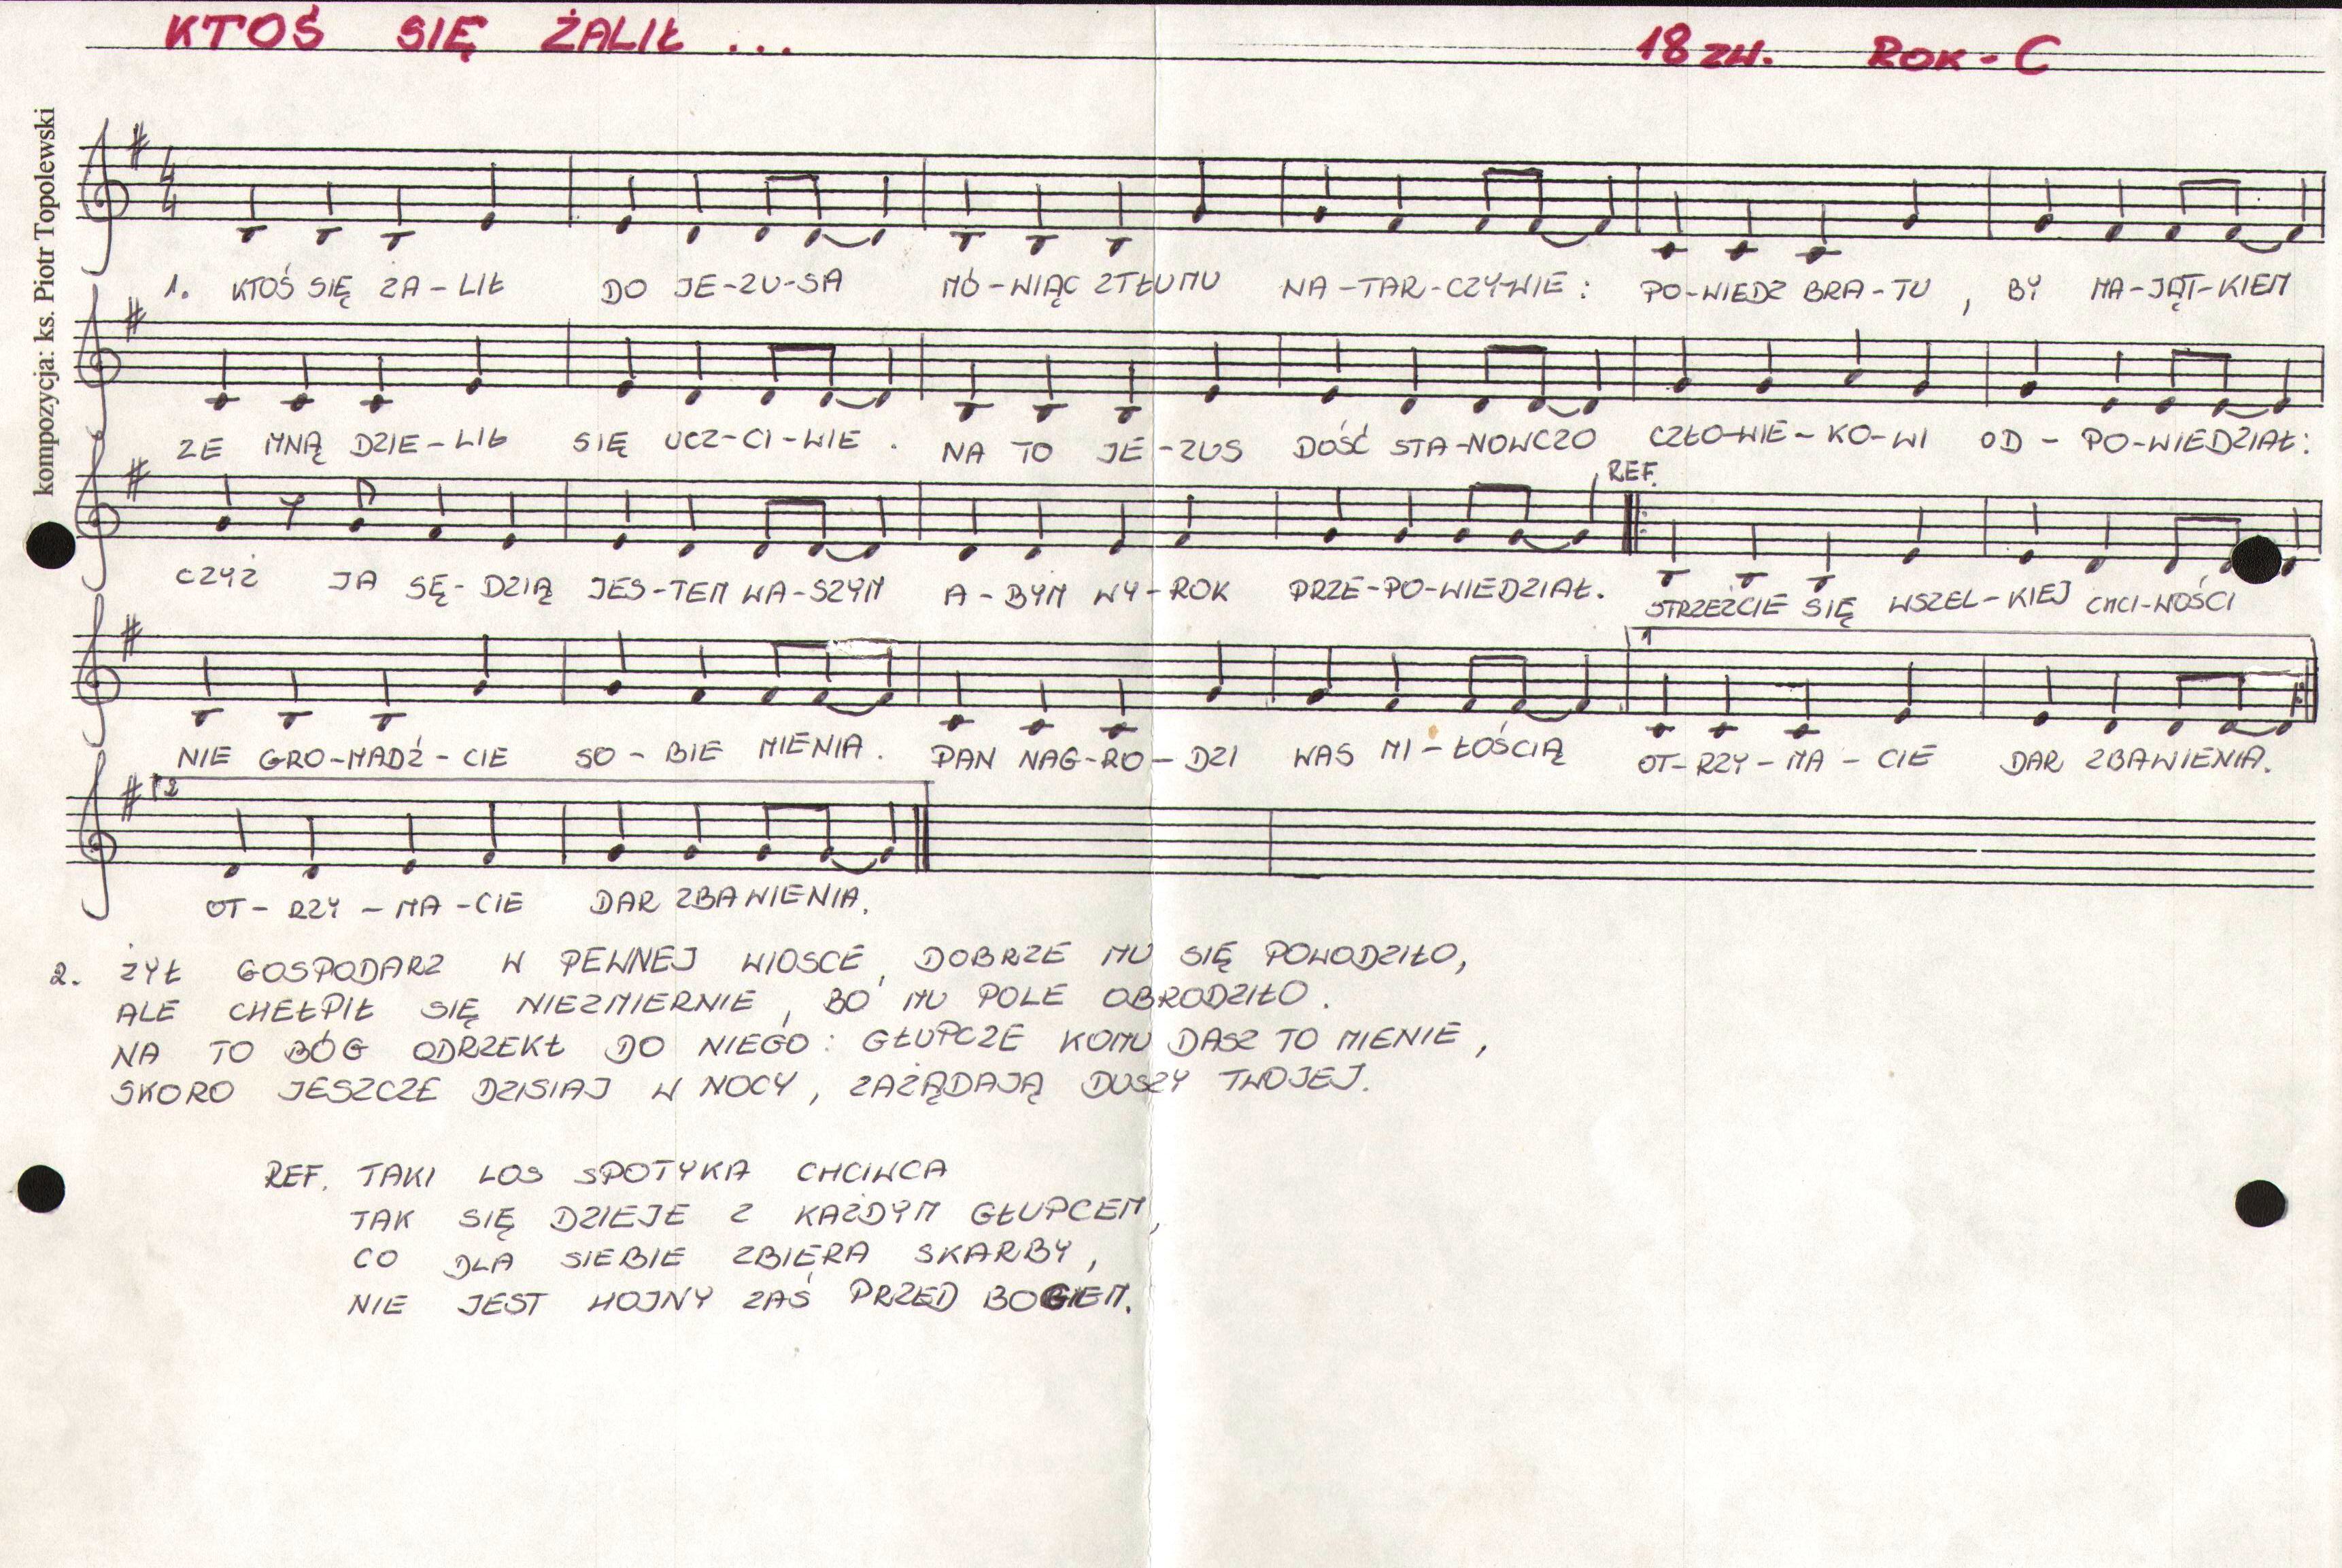 KTOŚ SIĘ ŻALIŁ ...
18 ZW. ROK - C
kompozycja: ks. Piotr Topolewski
1. KTOŚ SIĘ ŻA-LIŁ DO JE-ZU-SA MÓ-WIĄC Z TŁUMU NA-TAR-CZY-WIE: PO-WIEDZ BRA-TU, BY MA-JĄT-KIEM
ZE MNĄ DZIE-LIŁ SIĘ UCZ-CI-WIE. NA TO JE-ZUS DOŚĆ STA-NOWCZO CZŁO-WIE-KO-WI OD-PO-WIEDZIAŁ:
REF.
CZYŻ JA SĘ-DZIĄ JES-TEM WA-SZYM A-BYM WY-ROK PRZE-PO-WIEDZIAŁ. STRZEŻCIE SIĘ WSZEL-KIEJ CHCI-WOŚCI
1
NIE GRO-MADŹ-CIE SO-BIE MIENIA. PAN NAG-RO-DZI WAS MI-ŁOŚCIĄ OT-RZY-MA-CIE DAR ZBAWIENIA.
2
OT-RZY-MA-CIE DAR ZBAWIENIA.
2. ŻYŁ GOSPODARZ W PEWNEJ WIOSCE, DOBRZE MU SIĘ POWODZIŁO,
ALE CHEŁPIŁ SIĘ NIEZMIERNIE, BO MU POLE OBRODZIŁO.
NA TO BÓG ODRZEKŁ DO NIEGO: GŁUPCZE KOMU DASZ TO MIENIE,
SKORO JESZCZE DZISIAJ W NOCY, ZAŻĄDAJĄ DUSZY TWOJEJ.
REF. TAKI LOS SPOTYKA CHCIWCA
TAK SIĘ DZIEJE Z KAŻDYM GŁUPCEM,
CO DLA SIEBIE ZBIERA SKARBY,
NIE JEST HOJNY ZAŚ PRZED BOGIEM.